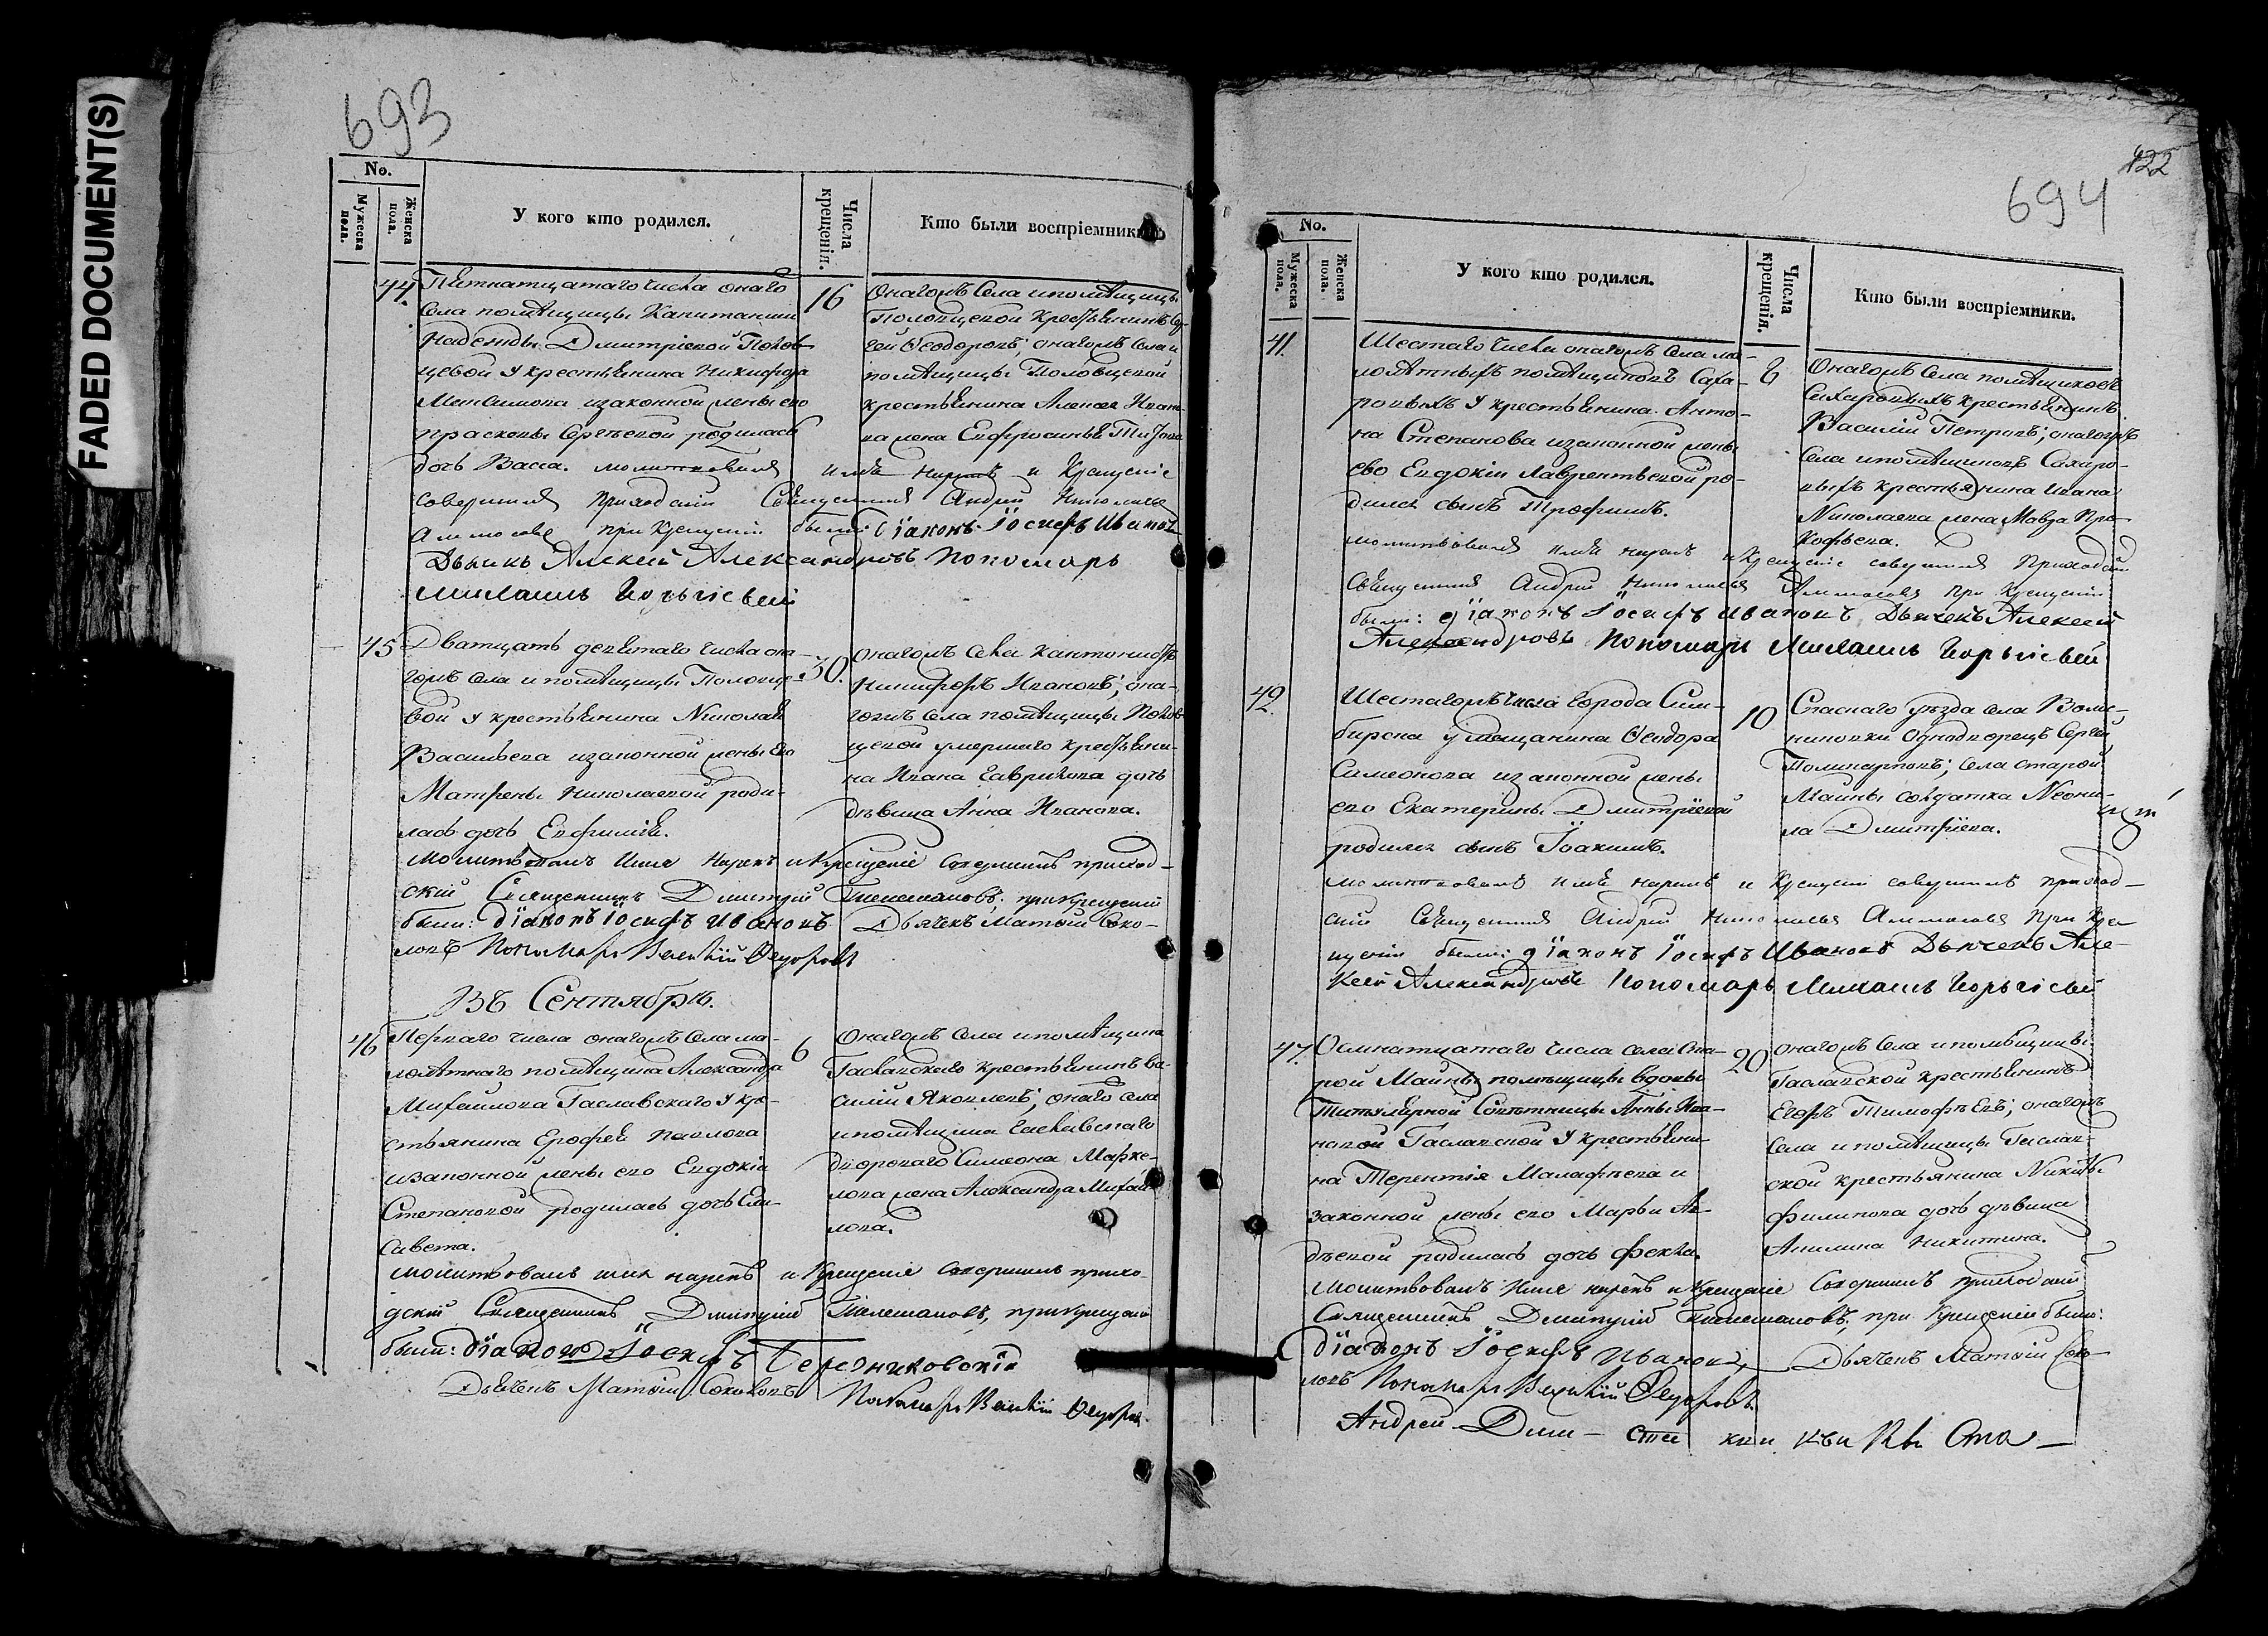 FADED DOCUMENT(S)
693
No.
Мужеска пола.
Женска пола.
У кого кто родился.
Числа крещенія.
Кто были воспріемники
44.
Пятнатцатаго числа онаго
села помѣщицы Капитанши
Надежды Дмитріевой Полов-
цевой у крестьянина Никифора
Максимова изаконной жены его
Прасковьи Сергѣевой родилась
дочь Васса.
16
Онагожъ села ипомѣщицы
Половцевой крестьянинъ Сер-
гей Ѳеодоровъ; онагожъ села и
помѣщицы Половцевой
крестьянина Алексея Ивано-
ва жена Евфросинья
молитвовалъ имя нарекъ и крещеніе
совершилъ приходскій Священникъ Андрей Николаевъ
Аммосовъ при крещеніи были: діаконъ Іосифъ Ивановъ
Дьячекъ Алексей Александровъ Пономарь
Михаилъ
45
Дватцать девятаго числа она-
гожъ села и помѣщицы Половце-
вой у крестьянина Николая
Васильева изаконной жены его
Матрены Николаевой роди-
лась дочь Евфимія.
30.
Онагожъ села кантонистъ
Никифоръ Ивановъ; она-
гожъ села помѣщицы Полов-
цевой умершаго крестьяни-
на Ивана Гаврилова дочь
дѣвица Анна Иванова.
молитвовалъ Имя нарекъ и крещеніе совершилъ приход-
скій Священникъ Димитрій при крещеніи
были: діаконъ Іосифъ Ивановъ Дьячекъ Матѳій Соко-
ловъ Пономарь Василій Ѳедоровъ
Въ Сентябрѣ.
46
Перваго числа онагожъ села ма-
лолѣтнаго помѣщика Александра
Михайлова Гаславскаго у кре-
стьянина Ерофея Павлова
изаконной жены его Евдокіи
Степановой родилась дочь Ели-
савета.
6
Онагожъ села ипомѣщика
Гаславскаго крестьянинъ Ва-
силій Яковлевъ; онаго села
ипомѣщика Гаславскаго
двороваго Симеона Марке-
лова жена Александра Михай-
лова.
молитвовалъ имя нарекъ и крещеніе совершилъ прихо-
дскій Священникъ Димитрій при крещеніи
были: діаконъ Іосифъ
Дьячекъ Матѳій Соколовъ Пономарь Василій Ѳедоровъ
422
694
No.
Мужеска пола.
Женска пола.
У кого кто родился.
Числа крещенія.
Кто были воспріемники.
41.
Шестаго числа онагожъ села ма-
лолѣтныхъ помѣщиковъ Саха-
ровыхъ у крестьянина Анто-
на Степанова изаконной жены
его Евдокіи Лаврентьевой ро-
дился сынъ Трофимъ.
8
Онагожъ села помѣщиковъ
Сахаровыхъ крестьянинъ
Василій Петровъ; онагожъ
села ипомѣщиковъ Сахаро-
выхъ крестьянина Ивана
Николаева жена Мавра Про-
кофьева.
молитвовалъ имя нарекъ и крещеніе совершилъ приходскій
Священникъ Андрей Николаевъ Аммосовъ при крещеніи
были: діаконъ Іосифъ Ивановъ Дьячекъ Алексей
Александровъ Пономарь Михаилъ
42.
Шестагожъ числа города Сим-
бирска у мещанина Ѳеодора
Симеонова изаконной жены
его Екатерины Дмитріевой
родился сынъ Іоакимъ.
10
Спаскаго уѣзда села
Однодворецъ Сергей
Поликарповъ; села Старой
Майны солдатка Неони-
ла Дмитріева.
молитвовалъ имя нарекъ и крещеніе совершилъ приход-
скій Священникъ Андрей Николаевъ Аммосовъ при кре-
щеніи были: діаконъ Іосифъ Ивановъ Дьячекъ Але-
ксей Александровъ Пономарь Михаилъ
47.
Осмнатцатаго числа села Ста-
рой Майны помѣщицы вдовы
Титулярной Совѣтницы Анны Ива-
новой Гаславской у крестьяни-
на Терентія Малафѣева и
законной жены его Марьи Ав-
дѣевой родилась дочь Фекла.
20
Онагожъ села ипомѣщицы
Гаславской крестьянинъ
Егоръ Тимофѣевъ; онагожъ
села и помѣщицы Гаслав-
ской крестьянина Никиты
Филипова дочь дѣвица
Акилина Никитина.
молитвовалъ Имя нарекъ и крещеніе совершилъ приходскій
Священникъ Димитрій при крещеніи были:
діаконъ Іосифъ Ивановъ, Дьячекъ Матѳій Соко-
ловъ Пономарь Василій Ѳедоровъ.
Андрей Дми-